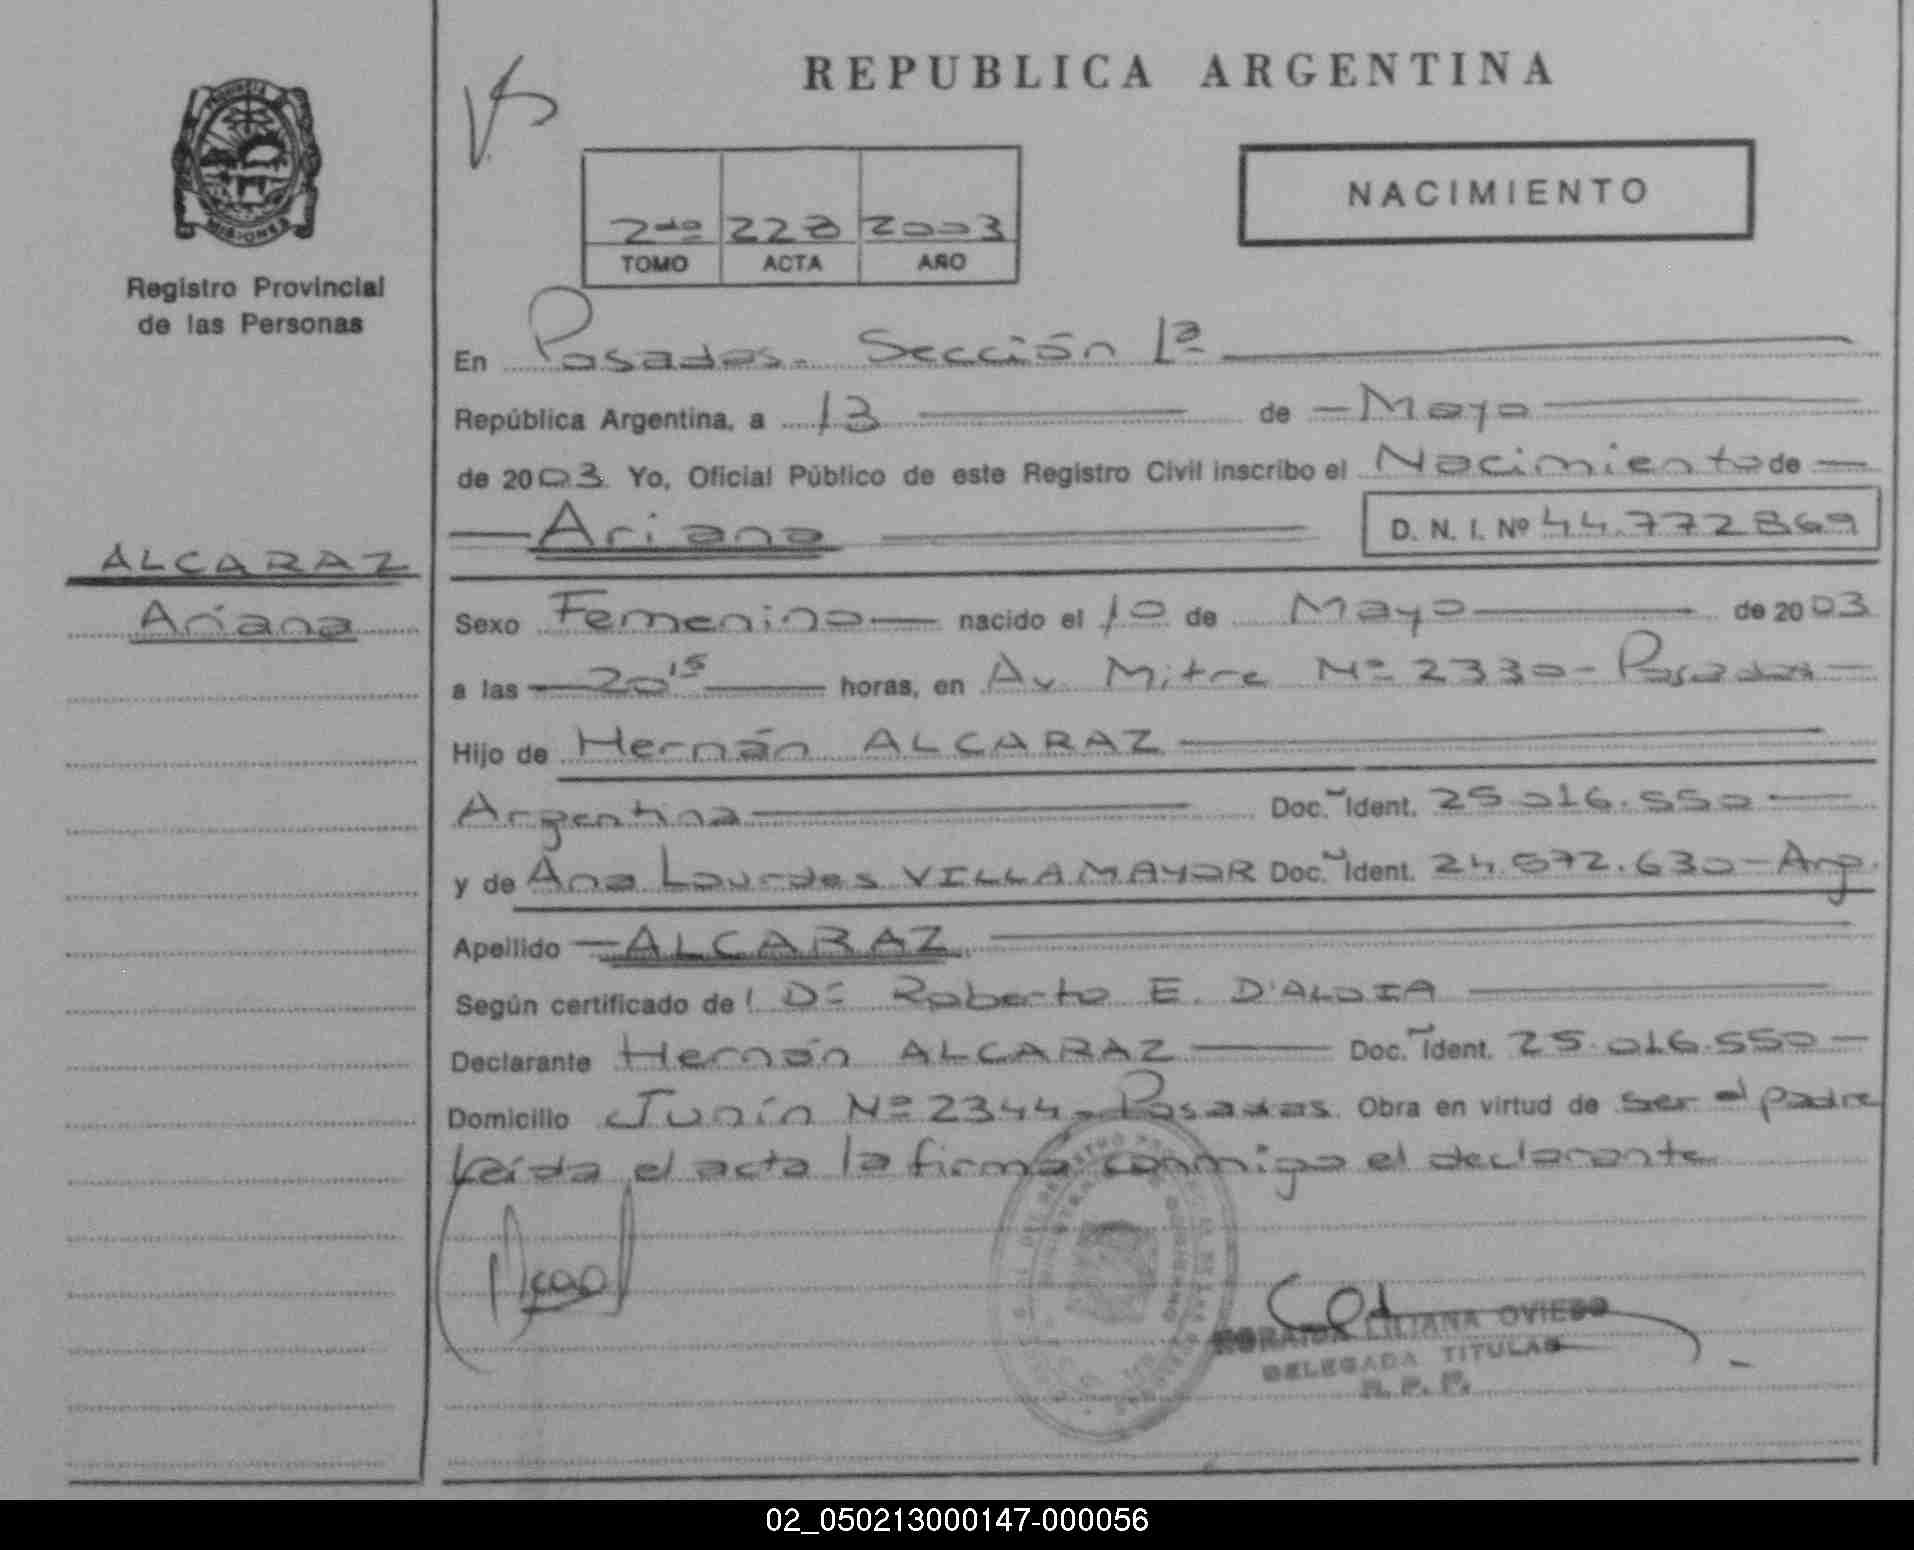 REPUBLICA ARGENTINA
NACIMIENTO
2do 228 2003
TOMO ACTA AÑO
PROVINCIA DE
MISIONES
Registro Provincial
de las Personas
En Posadas. Sección 1ª
República Argentina, a 13 de Mayo
de 2003 Yo, Oficial Público de este Registro Civil inscribo el Nacimiento de
Ariana D. N. I. Nº 44.772869
ALCARAZ
Ariana
Sexo Femenino nacido el 10 de Mayo de 2003
a las 20 15 horas, en Av. Mitre Nº 2330 - Posadas
Hijo de Hernán ALCARAZ
Argentina Doc. Ident. 25.016.550
y de Ana Lourdes VILLAMAYOR Doc. Ident. 24.572.630 - Arg.
Apellido ALCARAZ
Según certificado de Dr Roberto E. D'ALOIA
Declarante Hernán ALCARAZ Doc. Ident. 25.016.550
Domicilio Junín Nº 2344. Posadas. Obra en virtud de ser el padre
Leída el acta la firma conmigo el declarante
LILIANA OVIEDO
DELEGADA TITULAR
R. P. P.
02_050213000147-000056